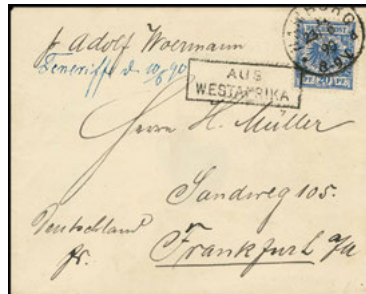 pr Adolf Woermann
Teneriffe d. 10/6 90
HAMBURG
AUS
WESTAFRIKA
20
Herrn H. Müller
Sandweg 105.
Deutschland
fr.
Frankfurt a/M